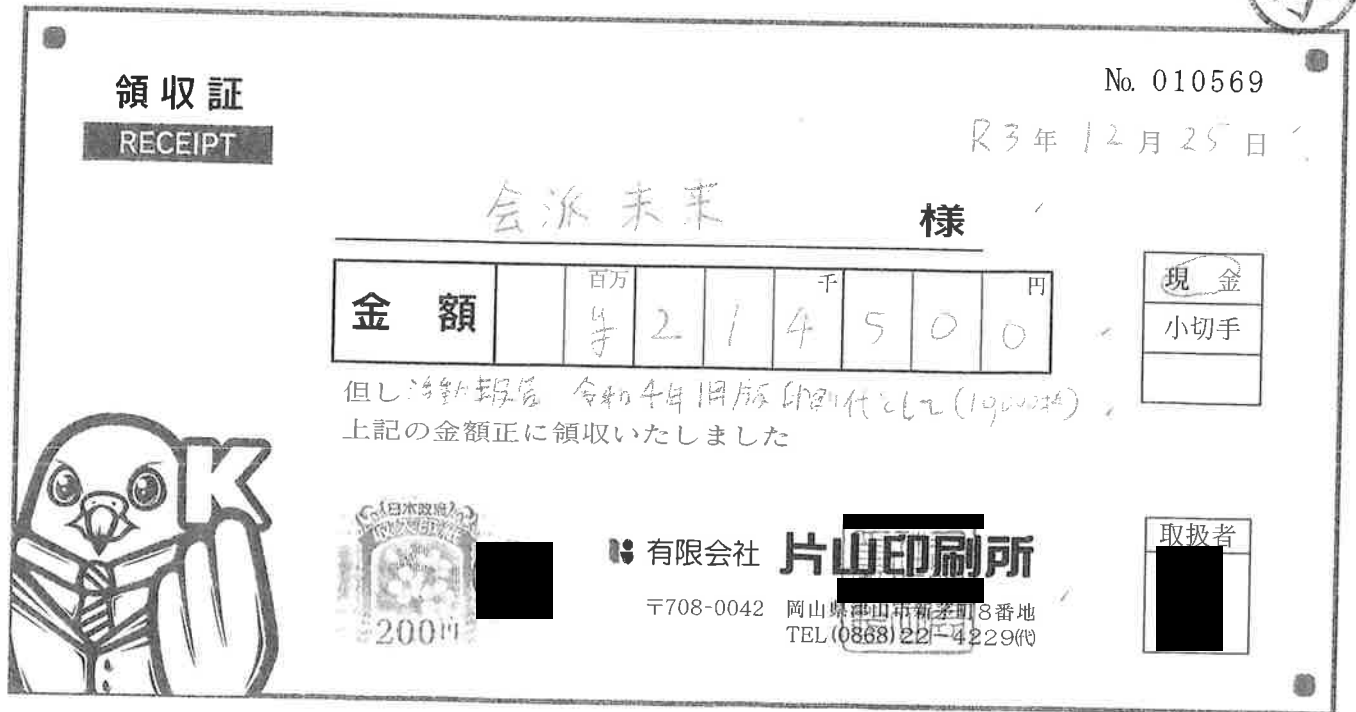 領収証
RECEIPT
No. 010569
R3年12月25日
会派未来 様
金額 百万 千 円
¥214500
現金
小切手
但し活動報告 令和4年1月版印刷代として
上記の金額正に領収いたしました
K
日本政府
収入印紙
200円
有限会社 片山印刷所
〒708-0042 岡山県津山市新茅町8番地
TEL(0868)22-4229㈹
取扱者